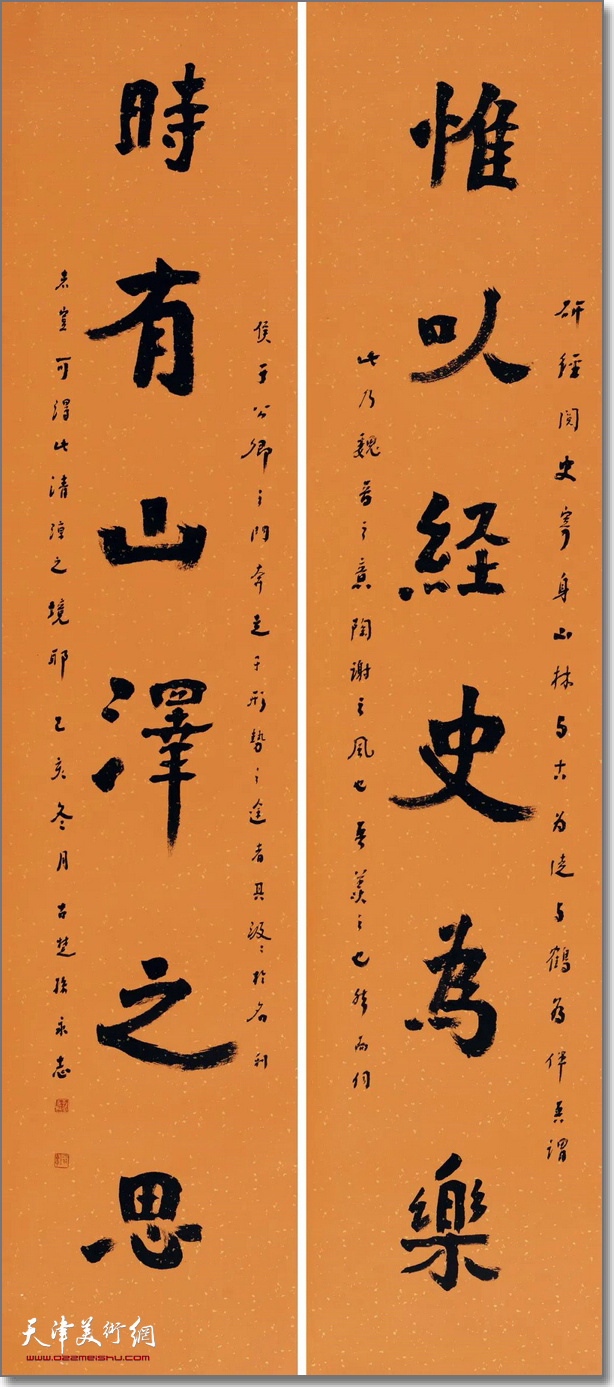 惟以経史為樂
研經閱史寄身山林与古为徒与鶴为伴吾謂
此乃魏晉之意陶谢之風也吾羨之也然而伺
時有山澤之思
候于公卿之門奔走于形勢之途者其汲汲於名利
者豈可得此清涼之境耶己亥冬月古楚孫永志
天津美術網
www.022meishu.com